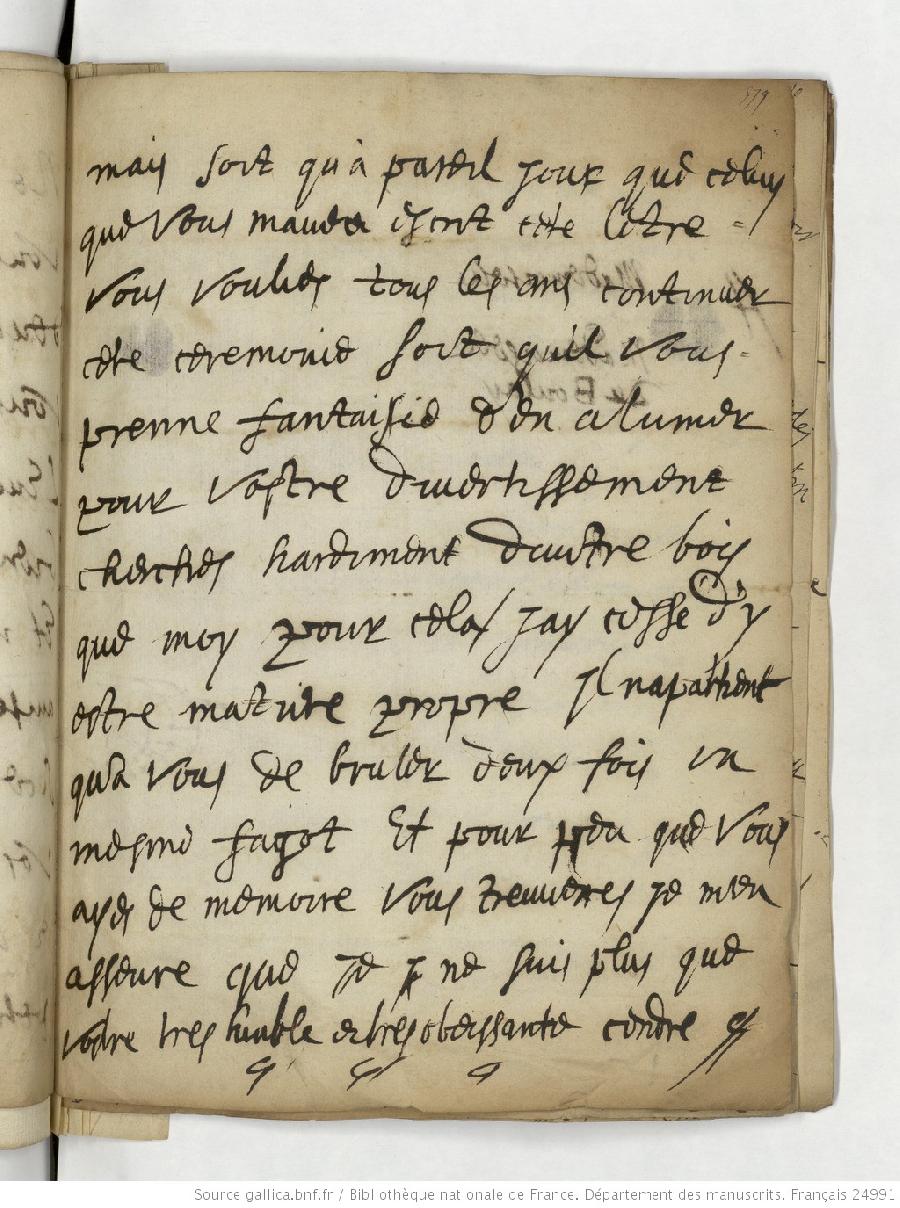 579
mais soit qu'a pareil jour que celuy
que vous mavés escrit cete letre =
vous voulies tous les ans continuer
cete ceremonie soit quil vous -
prenne fantaisie d'en alumer
pour vostre divertissement
cherches hardiment dautre bois
que moy pour cela / jay cesse d'y
estre matiere propre Il napartient
qu'a vous de bruler deux fois un
mesme fagot Et pour peu que vous
ayes de memoire vous treuverres je men
asseure que je ne suis plus que
vostre tres humble et tres obeissante cendre
Source gallica.bnf.fr / Bibliothèque nationale de France. Département des manuscrits. Français 24991